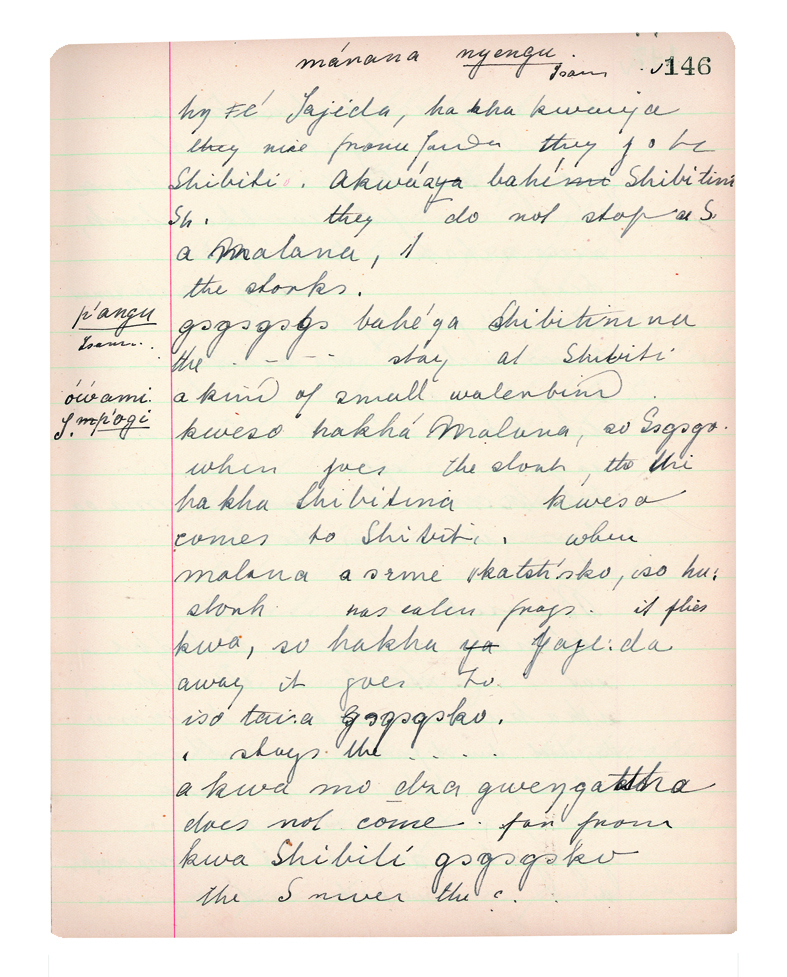 mánana nyengu.
Isam 146
by Fé Jajéda, hakha kwenya
they rise from they go to
Shibiti. Akwáaya bahémi Shibitini
Sh. they do not stop at S.
a Malana,
the storks.
p'angu
Isam.
gsgsgsgs bahé'ya Shibitini na
the - - - stay at Shibiti
ówami.
J. mp'ogi
a kind of small waterbird.
kweso hakhá Malana, so Gsgsgo.
when goes the stork, the
hakha Shibitina kweso
comes to Shibiti. when
malana a srme katsísko, iso hu:
stork has eaten frogs. it flies
kwa, so hakha ya Yaje:da
away it goes to.
iso tai:a gsgsgsko.
. stays the . . . .
a kwa mo dza gwenygattha
does not come far from
kwa Shibiti gsgsgsko
the S river the